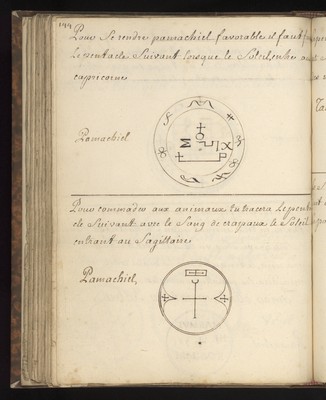 199
Pour Se rendre pamachiel favorable il faut
Le pentacle Suivant lorsque le Soleil entre au
capricorne
Pamachiel
Pour commader aux animaux tu tracera Le penta
cle Suivant avec le Sang de crapaux le Soleil
entrant au Sagittaire
Pamachiel,